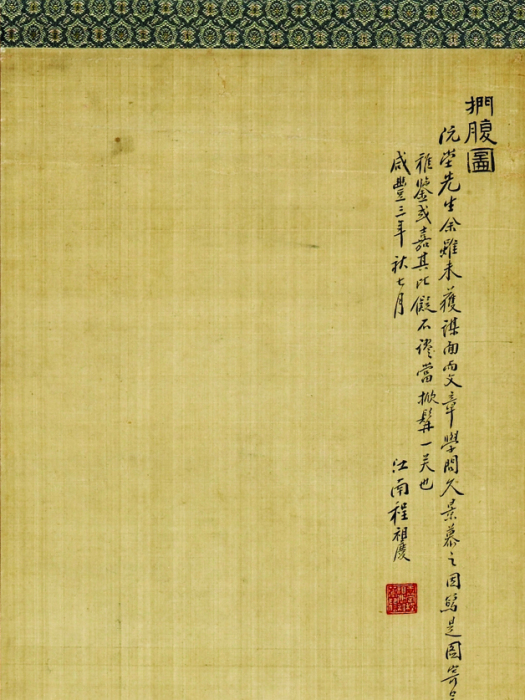 捫腹圖
沅堂先生余雖未獲謀面而文章學問久景慕之因寫是圖寄呈
雅鑒或嘉其比儗不謬當掀髯一笑也
咸豐三年秋七月
江南程祖慶